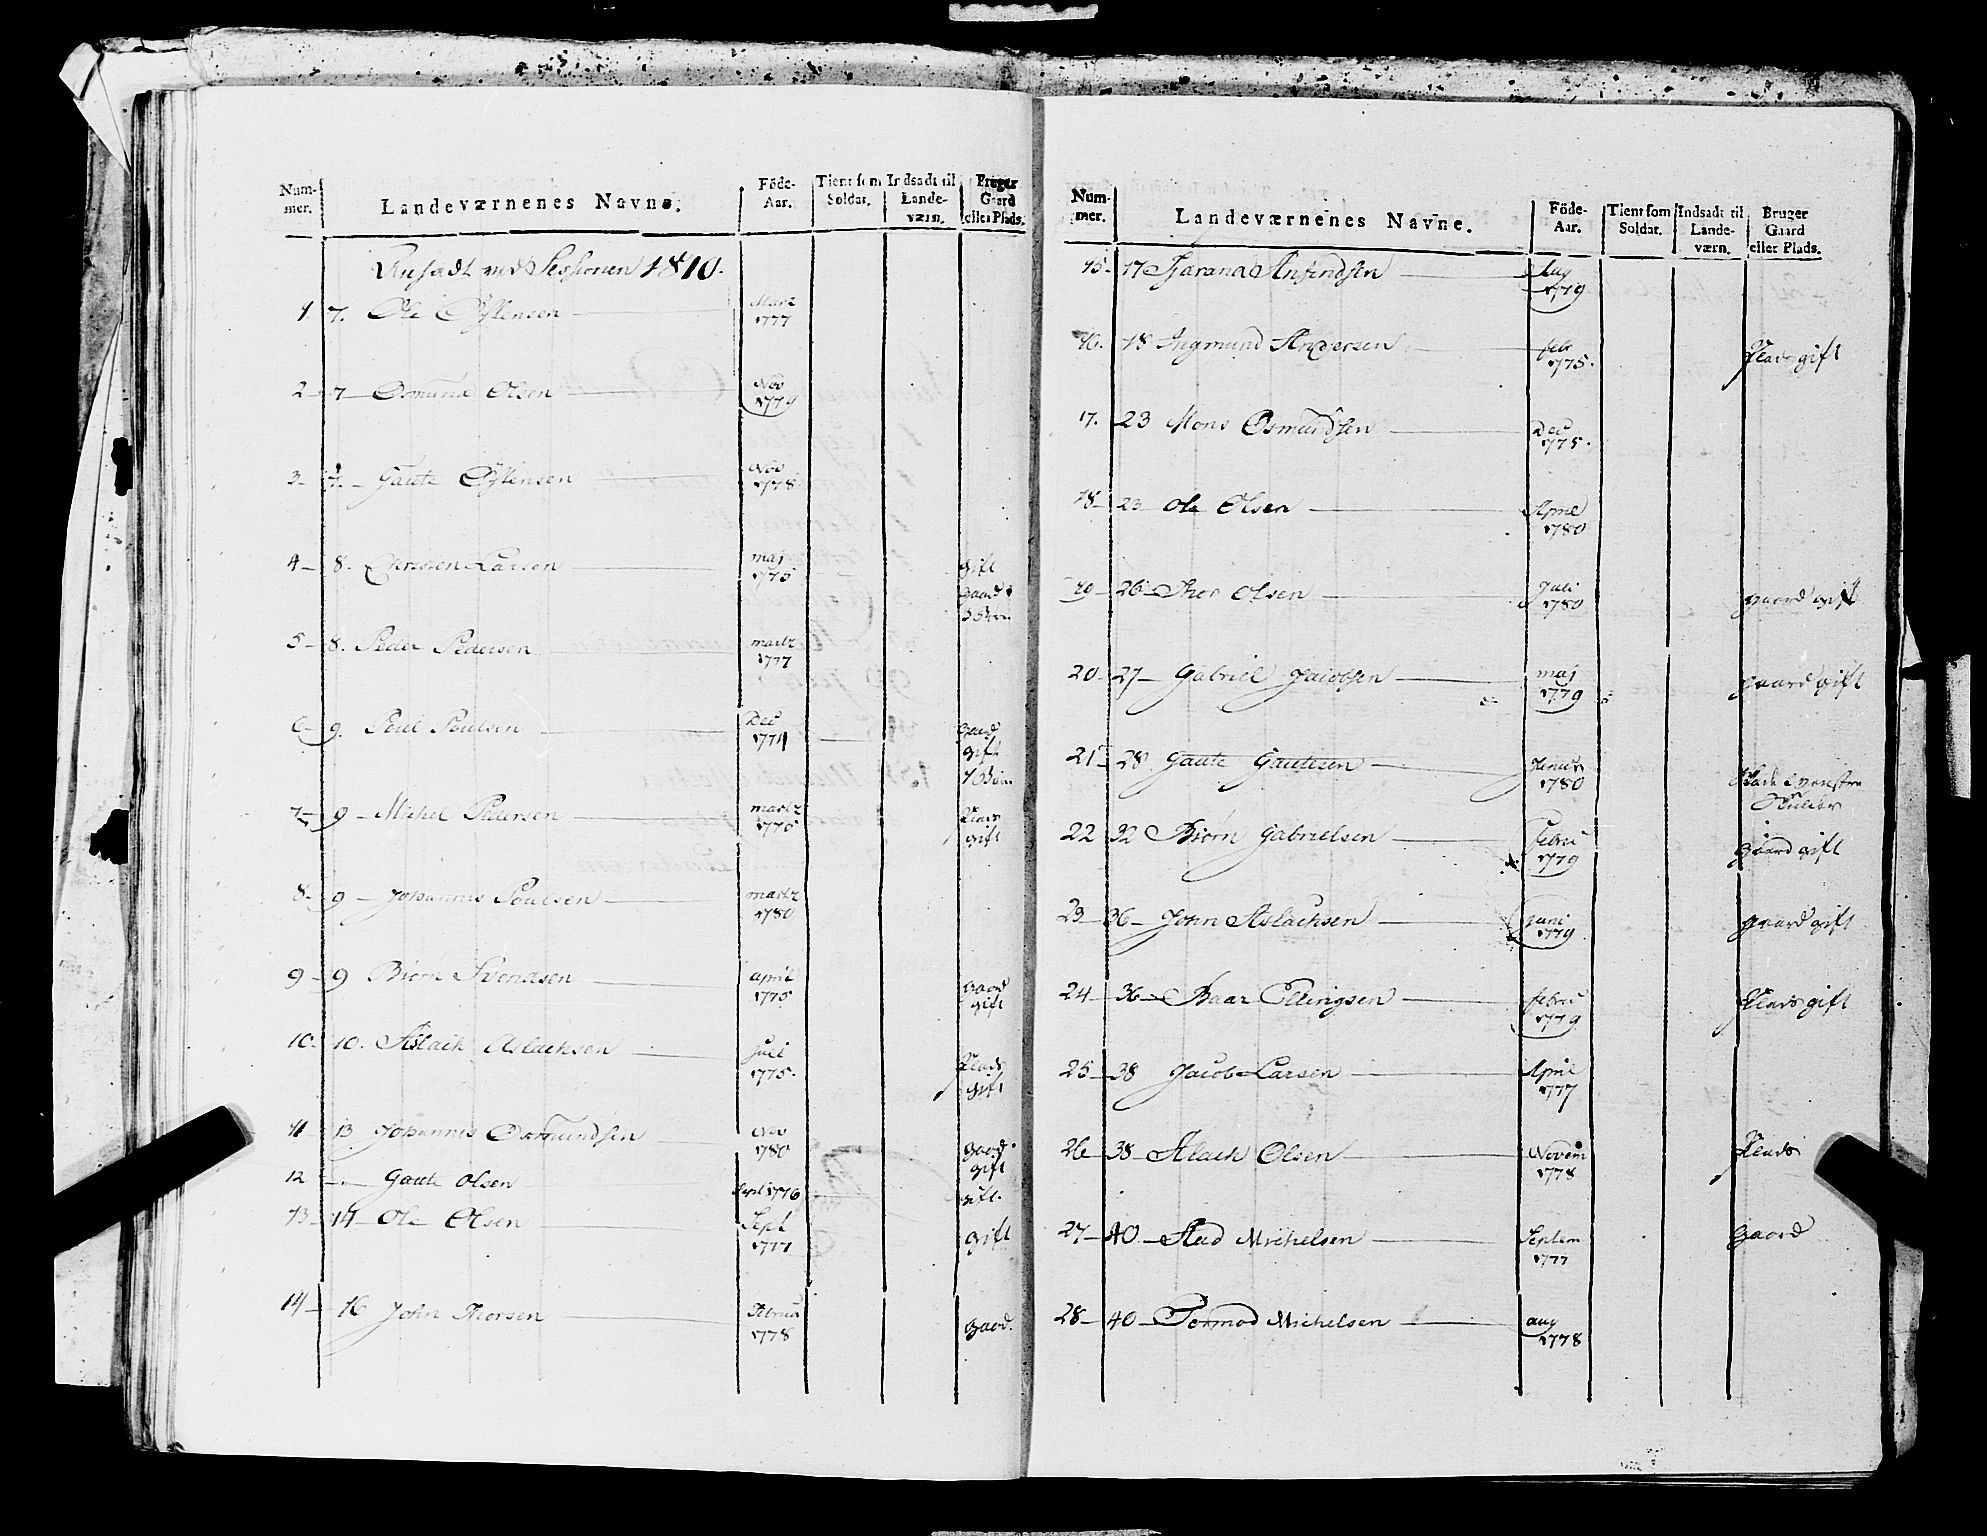 Num-mer. Landeværnenes Navne. Föde-Aar. Tient som Soldat. Indsadt til Lande-værn. Bruger Gaard eller Plads.
ved Sessionen 1810.
1 7. Ole Martz 1777
2 - 7 - Osmund Olsen Nov 1779
3 - Gaute Nov 1778
4 - 8. Christen Larsen maj 1775 gift Gaard 3 Børn
5 - 8. Peder Pedersen martz 1777
6 - 9. Poul Poulsen Dec 1774 Gaard gift 1 Barn
7 - 9 - Michel Pedersen martz 1775 Plads gift
8 - 9 - Johannes Poulsen martz 1780
9 - 9 Biørn Svendsen april 1775 Gaard gift
10 - 10. Aslach Aslachsen Juli 1775. Plads gift
11 - 13 Johannes Osmundsen Nov 1780 Gaard gift
12 - Gaute Olsen Sept 1776 gift.
13 - 14 - Ole Olsen Sept 1777 gift
14 - 16 John Thorsen Februa 1778 Gaard.
Num-mer. Landeværnenes Navne. Föde-Aar. Tient som Soldat. Indsadt til Lande-værn. Bruger Gaard eller Plads.
15 - 17 Anfindsen Aug 1779
16. 18 Ingmund Andersen febr 1775. Plads gift
17. 23 Mons Osmundsen Dec 1775.
18 - 23 Ole Olsen April 1780
19 - 26 - Thor Olsen Juli 1780 gaard gift
20 - 27 - Gabriel Jacobsen maj 1779 gaard gift
21 - 28 Gaute Gautesen Januar 1780
22 32 Biørn Gabrielsen Febru 1779 Gaard gift
23 - 36 - John Aslachsen Juni 1779 gaard gift
24 - 36 - Baar Ellingsen februa 1779 Plads gift
25 - 38 Jacob Larsen April 1777
26 - 38 - Aslach Olsen Novem 1778 Plads
27 - 40 - Aad Michelsen Septem 1777 Gaard
28 - 40 - Tormod Michelsen aug 1778